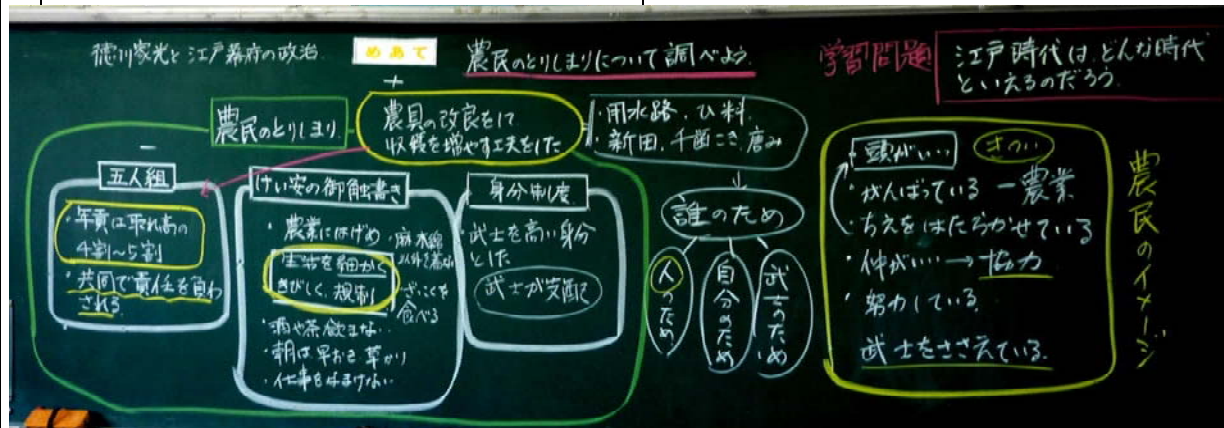 徳川家光と江戸幕府の政治
めあて
農民のとりしまりについて調べよう。
学習問題
江戸時代は、どんな時代
といえるのだろう。
+
農民のとりしまり
農具の改良をして
収穫を増やす工夫をした
・用水路、ひ料、
・新田、千歯こき、唐み
−
五人組
・年貢は取れ高の
4割〜5割
・共同で責任を負わ
される
けい安の御触書き
・農業にはげめ
生活を細かく
きびしく、規制
・麻、木綿
以外を着ない
・ざっこくを
食べる
・酒や茶飲まない
・朝は早おき草かり
・仕事をなまけない
身分制度
・武士を高い身分
とした
武士が支配
↓
誰のため
人のため
自分のため
武士のため
頭がいい
きつい
・がんばっている ー農業
・ちえをはたらかせている
・仲がいい→協力
・努力している
武士をささえている
農民のイメージ